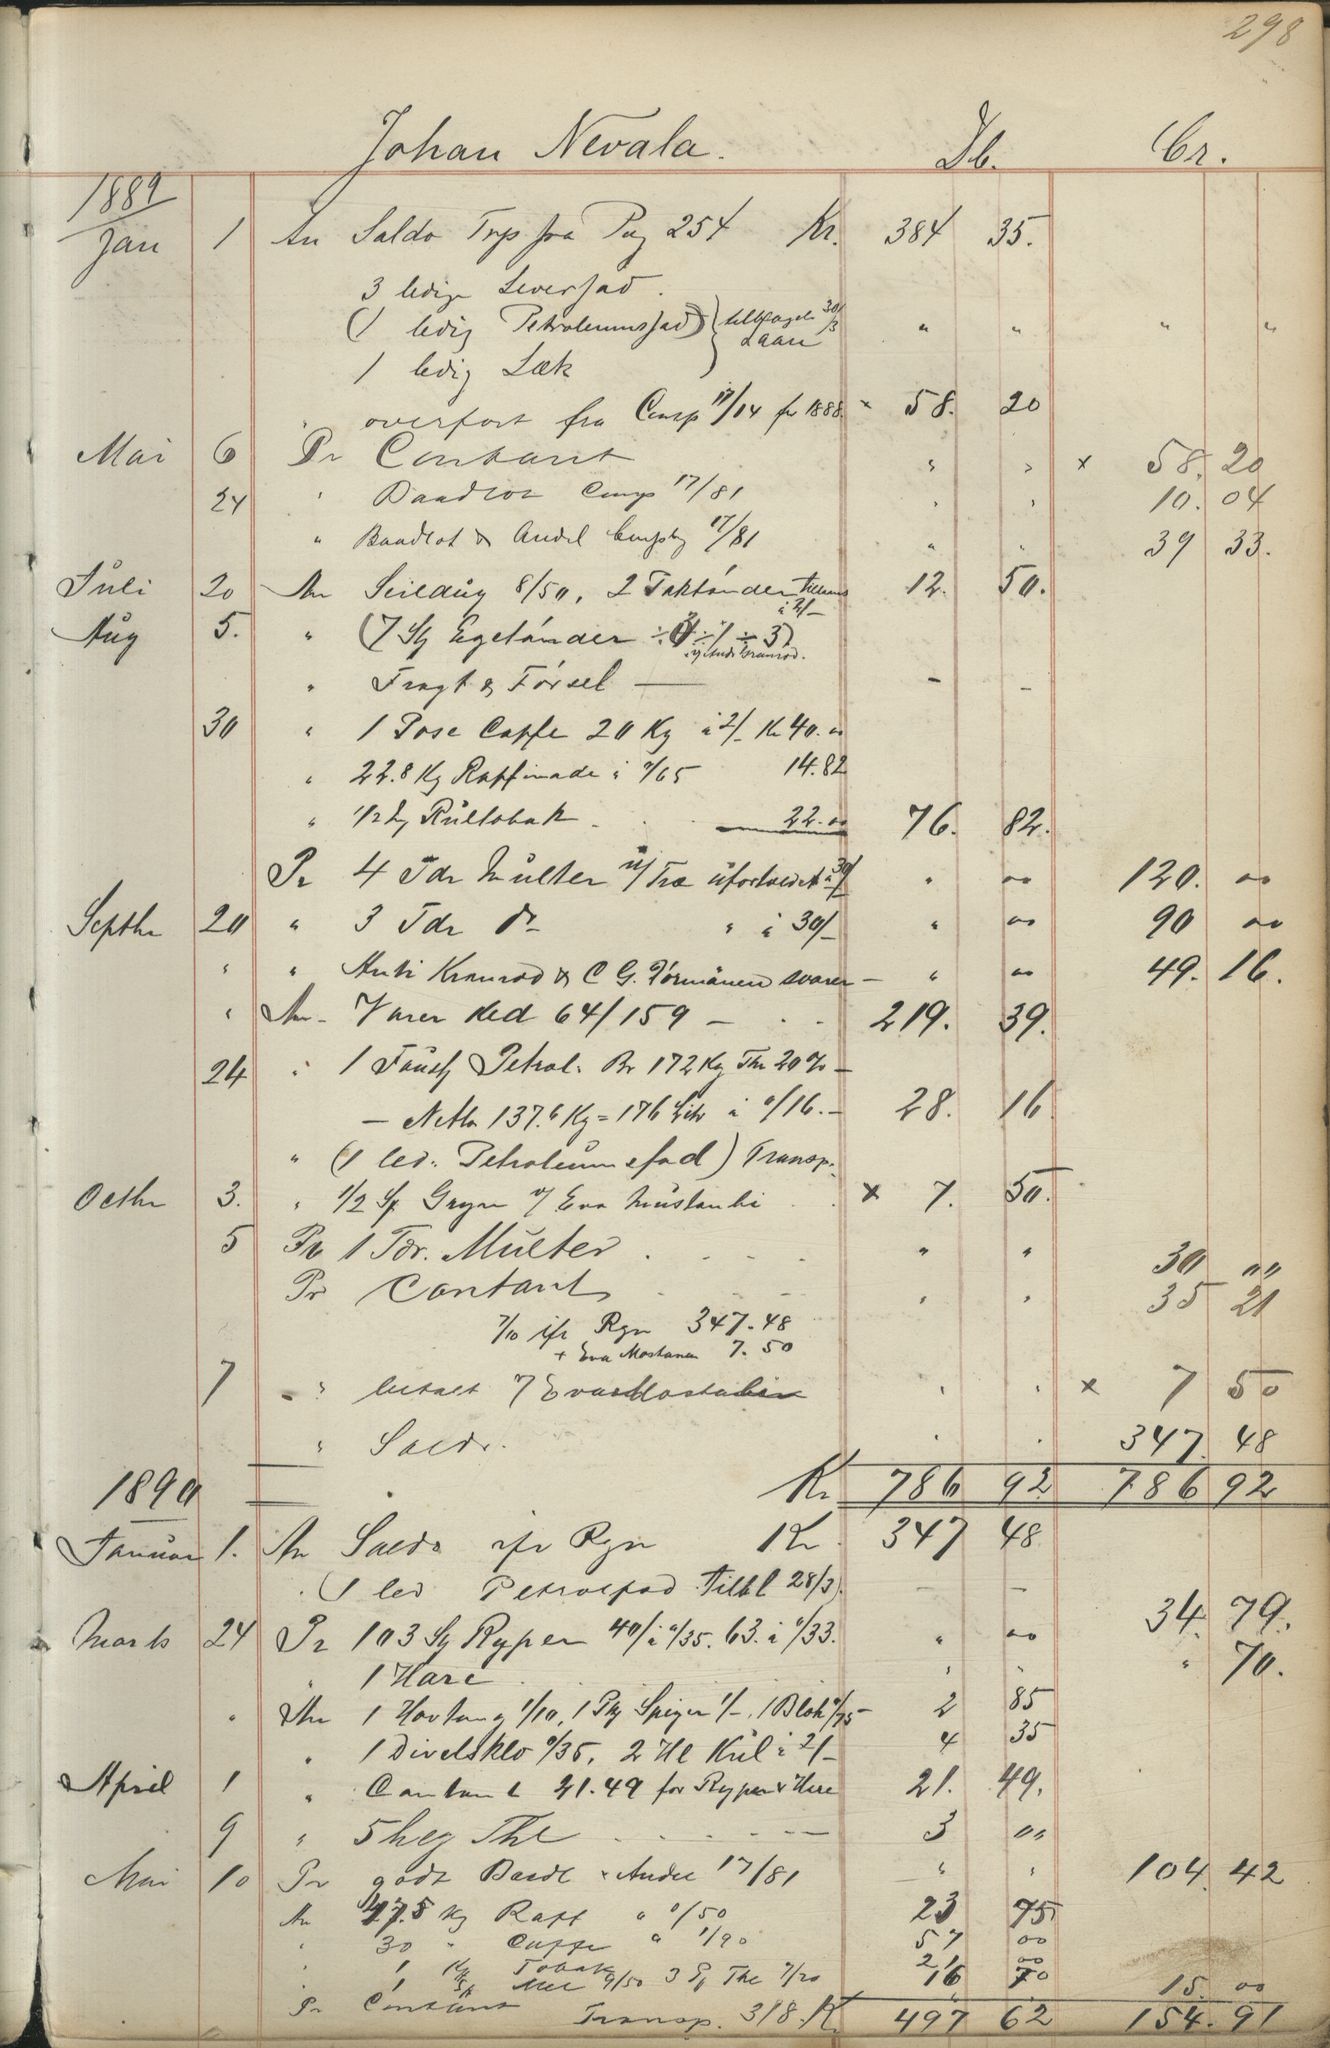 298
Johan Nevala. Db. Cr.
1889
Jan 1 An Saldo Trp. fra Pag 254 Kr. 384 35.
3 ledige Leverfad.
(1 ledig Petroleumsfad) tilbagel 30/3 " " " "
1 ledig Sæk Laan
" overført fra Comp 17/14 for 1888. × 58. 20
Mai 6 Pr Contant " " × 58. 20
24 " Baadlot Comp 17/81 " " 10. 04
" Baadlot & Andel Compag 17/81 " " 39 33.
Juli 20 An Seildug 8/50, 2 Faktønder tilsens à 2/- 12. 50.
Aug 5. " (7 St Egetønder ÷ 1 ÷ 3)
" Fragt & Førsel — - -
30 " 1 Pose Caffe 20 Kg à 2/- Kr 40.00
" 22.8 Kg Raffinade à "/65 14.82
" 1/2 Rultobak . . . 22.00 76. 82.
Pr 4 Tdr Multer u/ Træ ufortoldet à 30/- " 00 120. 00
Septbr 20 " 3 Tdr do " à 30/- " 00 90 00
" " Anti Kranrod & C G. Pörmänen svarer – " 00 49. 16.
" An Varer Ked 64/159 – . . 219. 39.
24 " 1 Faustg Petrol. Br 172 Kg Thr 20% –
— Netto 137.6 Kg = 176 Litr à "/16. – 28. 16
" (1 led. Petroleumsfad) Transp.
Octbr 3. " 1/2 Sk Gryn v/ Eva Mustanbi . . × 7. 50.
5 Pr 1 Tdr. Multer . . . . " " 30 ""
Pr Contant . . . " " 35 21
7/10 ifr Rgn 347.48
+ Eva Mostanen 7.50
7 " betalt v/ Eva Mostabin " " × 7 50
" Saldo. " " 347. 48
Kr 786 92 786 92
1890
Januar 1. An Saldo ifr Rgn Kr 347 48
(1 led Petrolfad Tilbl 28/3) – –
Marts 24 Pr 103 St Ryper 40/ à "/35. 63. à "/33. " 00 34. 79.
" 1 Hare . . . . " " " 70.
" An 1 Hovtang 1/10, 1 Pk Spiger 1/-, 1 Blok "/75 – 2 85
" 1 Divelsklo "/35, 2 Hl Kul à 2/- 4 35
April 1 " Contant 21.49 for Ryper & Hare 21. 49.
9 " 5 heg The . . . . – – 3 ""
Mai 10 Pr godt Baadl & Andel 17/81 " " 104. 42
An 47.5 Kg Raff " "/50 23 75
" 30 " Caffe " 1/90 57 00
" 1 Kg Tobak 21 00
" 1 Sk Mel 9/50 3 Pk The 7/20 16 70
Pr Contant 15. 00
Transp. 318. Kr 497 62 154. 91